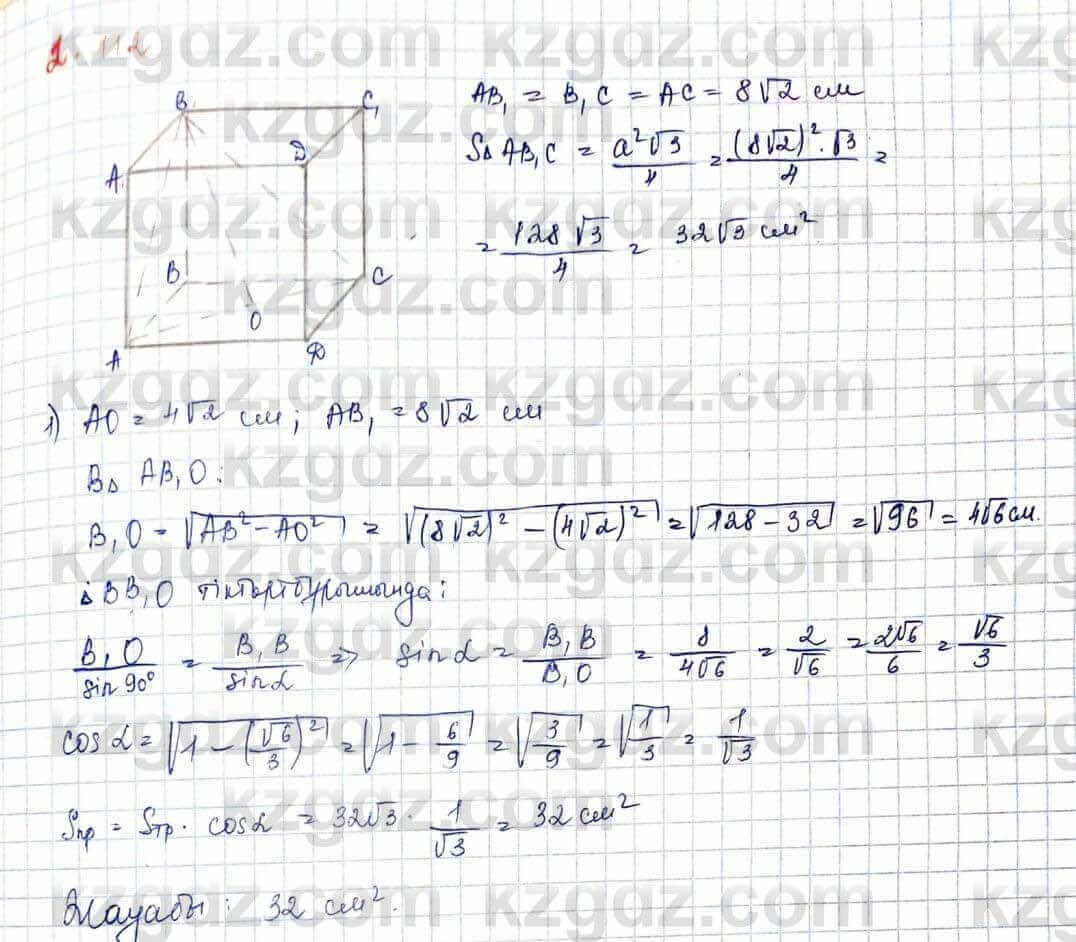 2.112
AB₁ = B₁C = AC = 8√2 см
S△AB₁C = a²√3/4 = (8√2)²·√3/4 =
= 128√3/4 = 32√3 см²
B C₁
A D
B C
O
A D
1) AO = 4√2 см; AB₁ = 8√2 см
B△ AB₁O:
B₁O = √(AB² − AO²) = √((8√2)² − (4√2)²) = √(128 − 32) = √96 = 4√6 см.
△BB₁O тіктөртбұрышында:
B₁O/sin 90° = B₁B/sin α => sin α = B₁B/B₁O = 8/4√6 = 2/√6 = 2√6/6 = √6/3
cos α = √(1 − (√6/3)²) = √(1 − 6/9) = √(3/9) = √(1/3) = 1/√3
Sпр = Sтр · cos α = 32√3 · 1/√3 = 32 см²
Жауабы: 32 см².
kzgdz.com